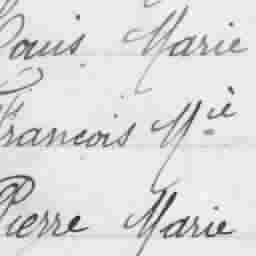 Louis Marie
François Mie
Pierre Marie